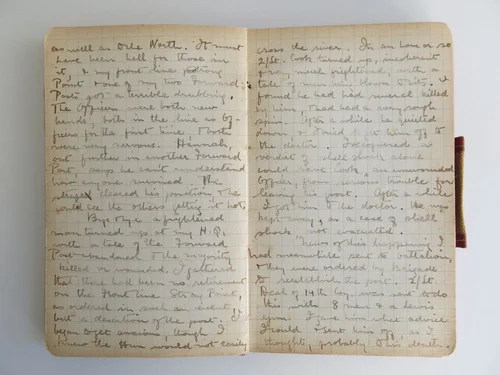 as well as on the North. It must
have been hell for those in
it, & my front line
Point & one of my two Forward
Posts got a terrible drubbing.
The Officers were both new
hands, both in the line as Of-
ficers for the first time, & both
were very nervous. Hannah,
out further in another Forward
Post, says he can't understand
how anyone survived. The
cleared his position & he
could see the others getting it hot.
Bye & bye a frightened
man turned up at my H.Q.
with a tale of the Forward
Post abandoned & the majority
killed or wounded. I gathered
that there had been no retirement
on the Front line Strong Point,
as ordered in such an event,
but a desertion of the post. I
began to get anxious, though I
knew the Hun would not easily
cross the river. In an hour or so
2/Lt. Cook turned up, incoherent
grey, much frightened, with a
tale of running down
found he had had several killed
by him, & had had a very rough
spin. After a while he quieted
down, & I tried to get him off to
the doctor. I recognised a
verdict of shell shock alone
could save Cook, an unwounded
Officer, from serious trouble for
leaving his post. After a while
I got him to the doctor. He was
kept away, as a case of shell
shock not evacuated.
News of this happening I
had meanwhile sent to battalion,
& they were ordered by Brigade
to reestablish the post. 2/Lt.
of 14th Coy. was sent to do
this with 8 men & a Lewis
gun. I gave him what advice
I could & sent him off, as I
thought, probably to his death.